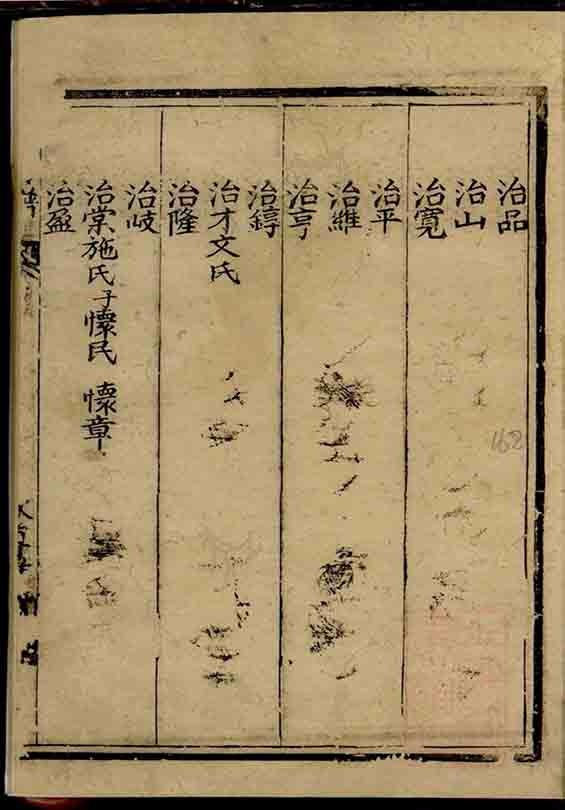 治品
治山
治寬
治平
治維
治亨
治錞
治才文氏
治隆
治岐
治棠施氏子懷民 懷章
治盈
162